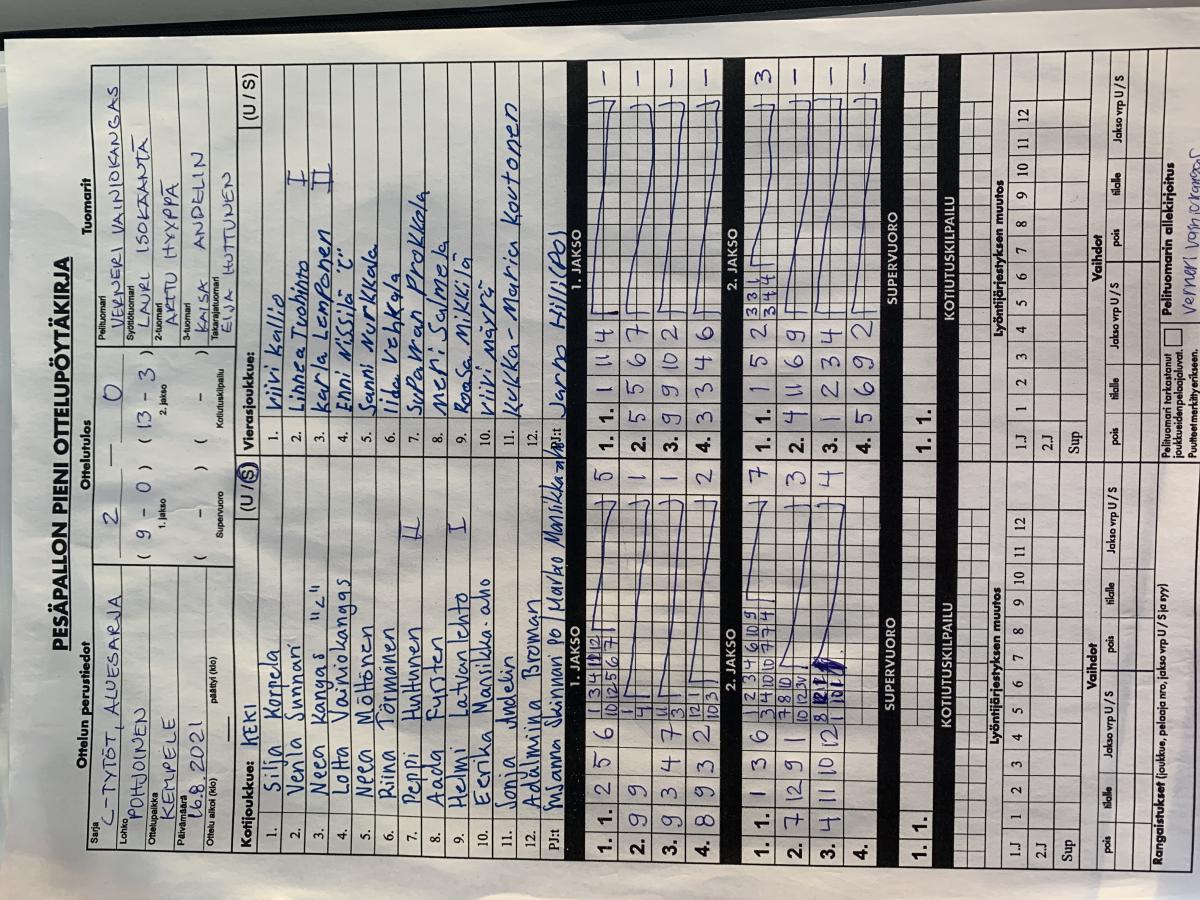 PESÄPALLON PIENI OTTELUPÖYTÄKIRJA
Ottelun perustiedot
Ottelutulos
Tuomarit
Sarja
C-TYTÖT, ALUESARJA
Lohko
POHJOINEN
Ottelupaikka
KEMPELE
Päivämäärä
16.8.2021
Ottelu alkoi (klo)
päättyi (klo)
2 — 0
( 9 - 0 ) ( 13 - 3 )
1. jakso
2. jakso
( - ) ( - )
Supervuoro
Kotiutuskilpailu
Pelituomari
VERNERI VAINIOKANGAS
Syöttötuomari
LAURI ISOKÄÄNTÄ
2-tuomari
ARTTU HYYPPÄ
3-tuomari
KAISA ANDELIN
Takarajatuomari
EIJA HUTTUNEN
Kotijoukkue: KEKI (U / S)
1. Silja Kornela
2. Venla Sunnari
3. Neea Kangas "2"
4. Lotta Vainiokangas
5. Neea Möttönen
6. Riina Törmänen
7. Peppi Huttunen II
8. Aada Fursten
9. Helmi Latvanlehto I
10. Eerika Mansikka-aho
11. Sonja Andelin
12. Adalmiina Broman
PJ:t Susanna Sunnari po Marko Mansikka-aho
Vierasjoukkue: (U / S)
1. Viivi Kallio
2. Linnea Tuohino I
3. Karla Lemponen II
4. Enni Nissilä "C"
5. Sanni Nurkkala
6. Iida Vehkala
7. Suparman Prokkola
8. Meri Salmela
9. Roosa Mikkilä
10. Viivi Näyrä
11. Kukka-Maria Koutonen
12.
PJ:t Jarno Hilli(po)
1. JAKSO
1. JAKSO
1. 1. 2 5 6 5
2. 9 9 1
3. 9 3 4 7 1
4. 8 9 3 2 2
1. 1. 1 11 4 –
2. 5 5 6 7 –
3. 9 9 10 2 –
4. 3 3 4 6 –
2. JAKSO
2. JAKSO
1. 1. 1 3 6 7
2. 7 12 9 1 3
3. 4 11 10 12 4
4.
1. 1. 1 5 2 3
2. 4 11 6 9 –
3. 1 2 3 4 –
4. 5 6 9 2 –
SUPERVUORO
SUPERVUORO
1. 1.
1. 1.
KOTIUTUSKILPAILU
KOTIUTUSKILPAILU
Lyöntijärjestyksen muutos
Lyöntijärjestyksen muutos
1.J 1 2 3 4 5 6 7 8 9 10 11 12
2.J
Sup
1.J 1 2 3 4 5 6 7 8 9 10 11 12
2.J
Sup
Vaihdot
Vaihdot
pois tilalle Jakso vrp U / S pois tilalle Jakso vrp U / S
pois tilalle Jakso vrp U / S pois tilalle Jakso vrp U / S
Rangaistukset (joukkue, pelaaja nro, jakso vrp U / S ja syy)
Pelituomari tarkastanut
joukkueiden pelaajaluvat.
Puutteet merkitty erikseen.
Pelituomarin allekirjoitus
Verneri Vainiokangas